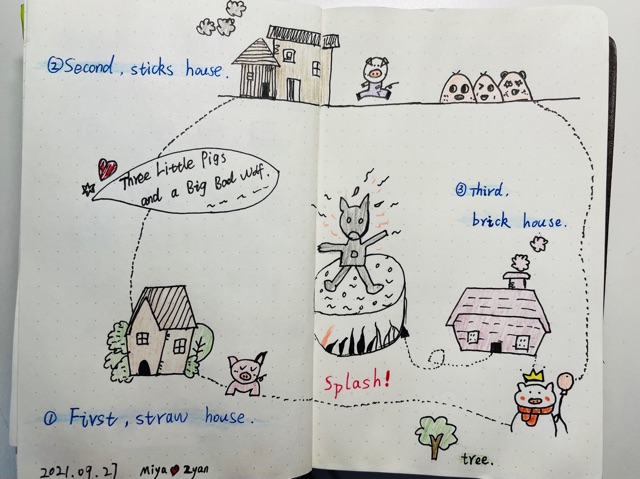 ②Second, sticks house.
Three Little Pigs
and a Big Bad Wolf.
③Third,
brick house.
Splash!
① First, straw house.
tree.
2021.09.27 Miya ♥ Zyan